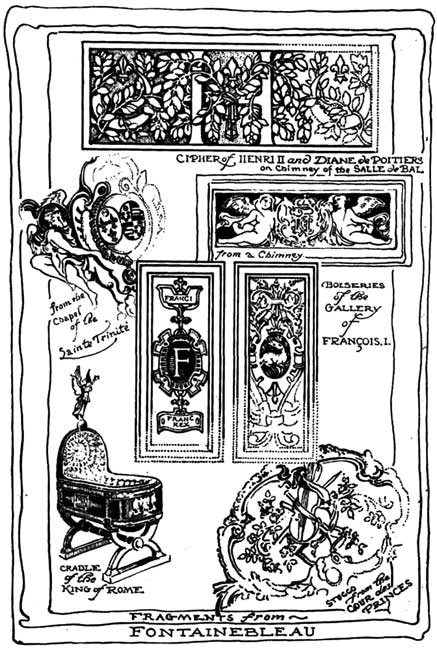 CIPHER of HENRI II and DIANE de POITIERS
on Chimney of the SALLE de BAL
from a Chimney
from the
Chapel
of the
Sainte Trinité
BOISERIES
of the
GALLERY
of
FRANÇOIS. I.
FRANCI
F
FRANC
REX
CRADLE
of the
KING of ROME
STUCCO from the
COUR des
PRINCES
FRAGMENTS from
FONTAINEBLEAU